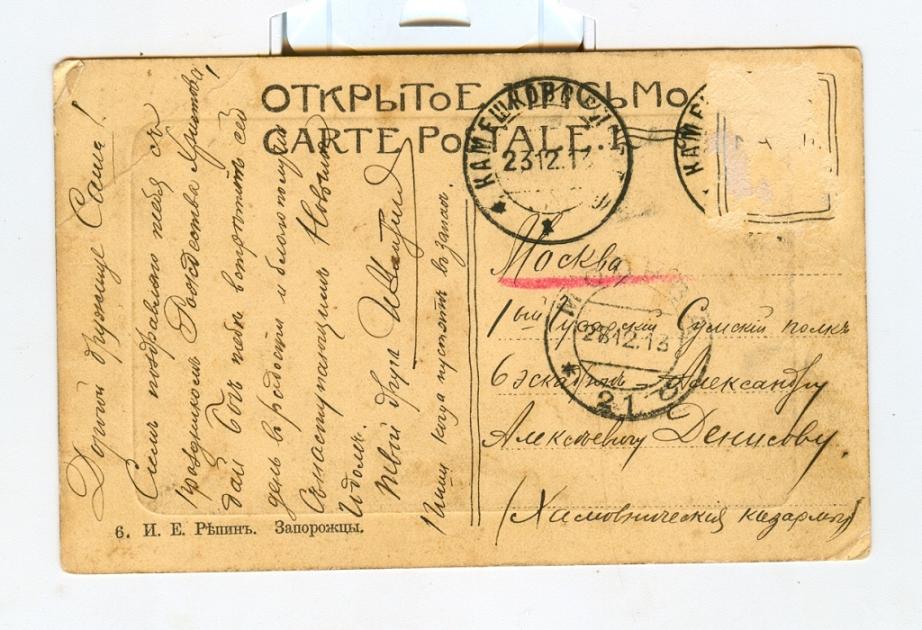 ОТКРЫТОЕ ПИСЬМО
CARTE POSTALE.
КАМЕШКОВО
23 12 13
КАМ
Дорогой дружище Саша!
Симъ поздравляю тебя съ
праздникомъ Рождества Христова!
дай Богъ тебѣ встрѣтить сей
день въ радости и благополучіи
Съ наступающимъ Новымъ
Годомъ.
Твой другъ
Пиши когда пустятъ въ запасъ.
Москва
1ый Гусарскій Сумскій полкъ
28 12 13
21
6 эскадронъ – Александру
Алексѣевичу Денисову.
(Хамовническія казармы)
6. И. Е. Рѣпинъ. Запорожцы.